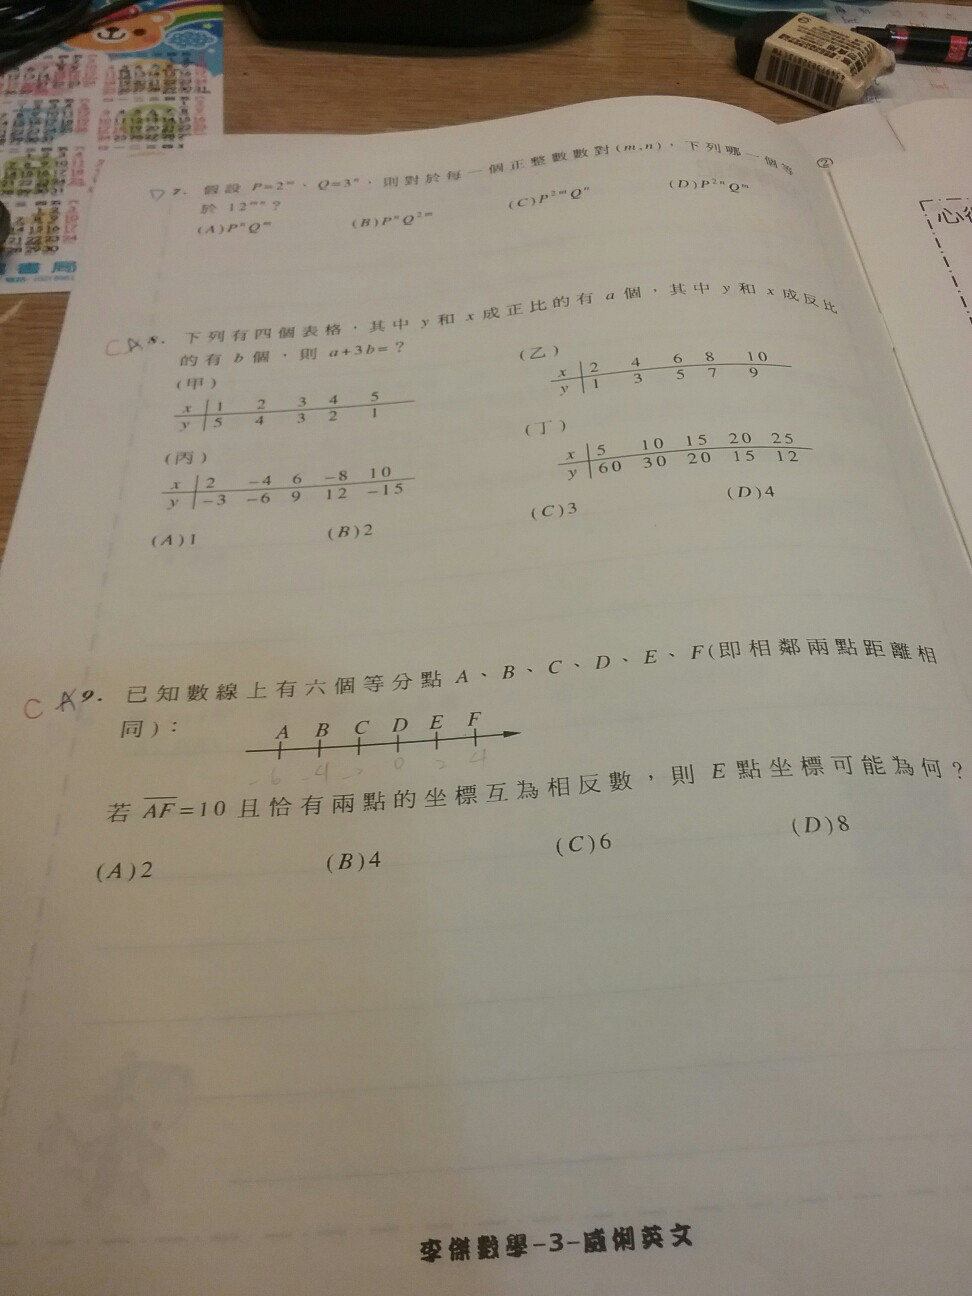 ②
D 7. 假設 P=2ᵐ、Q=3ⁿ,則對於每一個正整數數對(m,n),下列哪一個等
於 12ᵐⁿ?
(A)PⁿQᵐ (B)PⁿQ²ᵐ (C)P²ᵐQⁿ (D)P²ⁿQᵐ
C A 8. 下列有四個表格,其中 y 和 x 成正比的有 a 個,其中 y 和 x 成反比
的有 b 個,則 a+3b=?
(甲) (乙)
x 1 2 3 4 5
y 5 4 3 2 1
x 2 4 6 8 10
y 1 3 5 7 9
(丙) (丁)
x 2 -4 6 -8 10
y -3 -6 9 12 -15
x 5 10 15 20 25
y 60 30 20 15 12
(A)1 (B)2 (C)3 (D)4
C A 9. 已知數線上有六個等分點 A、B、C、D、E、F(即相鄰兩點距離相
同):
A B C D E F
-6 -4 -2 0 2 4
若 AF=10 且恰有兩點的坐標互為相反數,則 E 點坐標可能為何?
(A)2 (B)4 (C)6 (D)8
李傑數學-3-威俐英文
書局